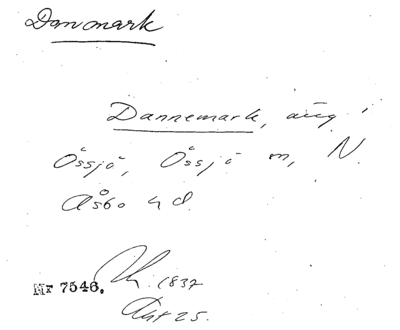 Danmark
Dannemark, äng i
Össjö, Össjö sn, N.
Åsbo hd.
Nr 7546. 1837
Akt 25.